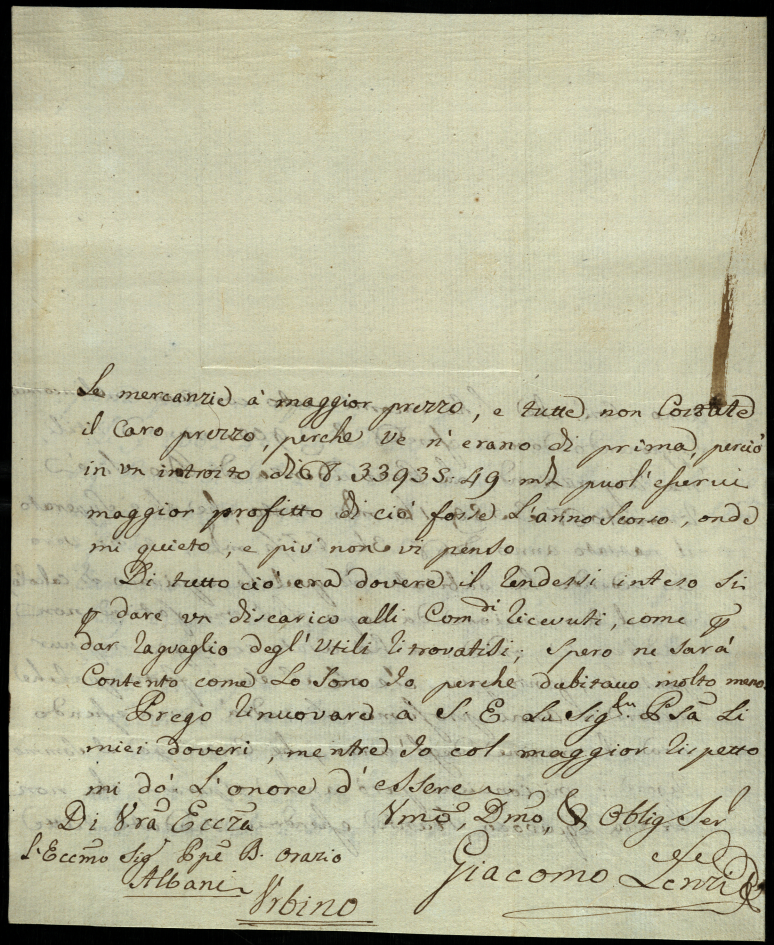 Le mercanzie à maggior prezzo, e tutte non Costate
il Caro prezzo, perche ve n'erano di prima, perciò
in un introito di 33935.49 mta puol' esservi
maggior profitto di ciò forse L'anno Scorso, onde
mi quieto, e più non vi penso
Di tutto ciò era dovere il rendersi inteso si
p dare un discarico alli Comdi ricevuti, come p
dar raguaglio degl'Utili ritrovatisi; Spero ne Sarà
Contento come Lo Sono Io perche dubitavo molto meno.
Prego rinuovare à S. E. La Sigra Pssa Li
miei doveri, mentre Io col maggior rispetto
mi dò L'onore d'essere
Di Vra Eccza Vmo, Dmo, & Oblig Ser
L'Eccmo Sigr Ppe D. Orazio
Albani
Urbino
Giacomo Lenzi